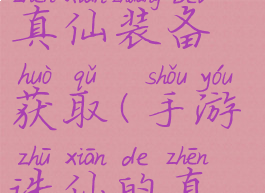 真仙装备
huò qǔ shǒu yóu
获取(手游
zhū xiān de zhēn
诛仙的真